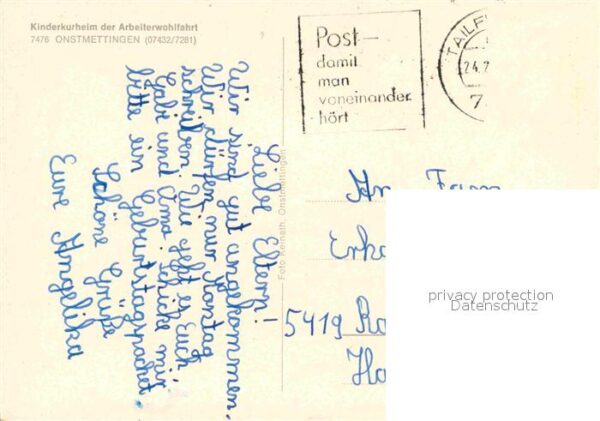 Kinderkurheim der Arbeiterwohlfahrt
7476 ONSTMETTINGEN (07432/7281)
Post-
damit
man
voneinander
hört
TAILF
24.
7
Liebe Eltern!
Wir sind gut angekommen.
Wir dürfen nur Montag
schreiben. Wie geht es Euch,
Gabi und Oma. Schicke mir
bitte ein Geburtstagspacket.
Schöne Grüße
Eure Angelika
Foto Keinath, Onstmettingen
An Fam
Erk
5419 Ra
Ha
privacy protection
Datenschutz